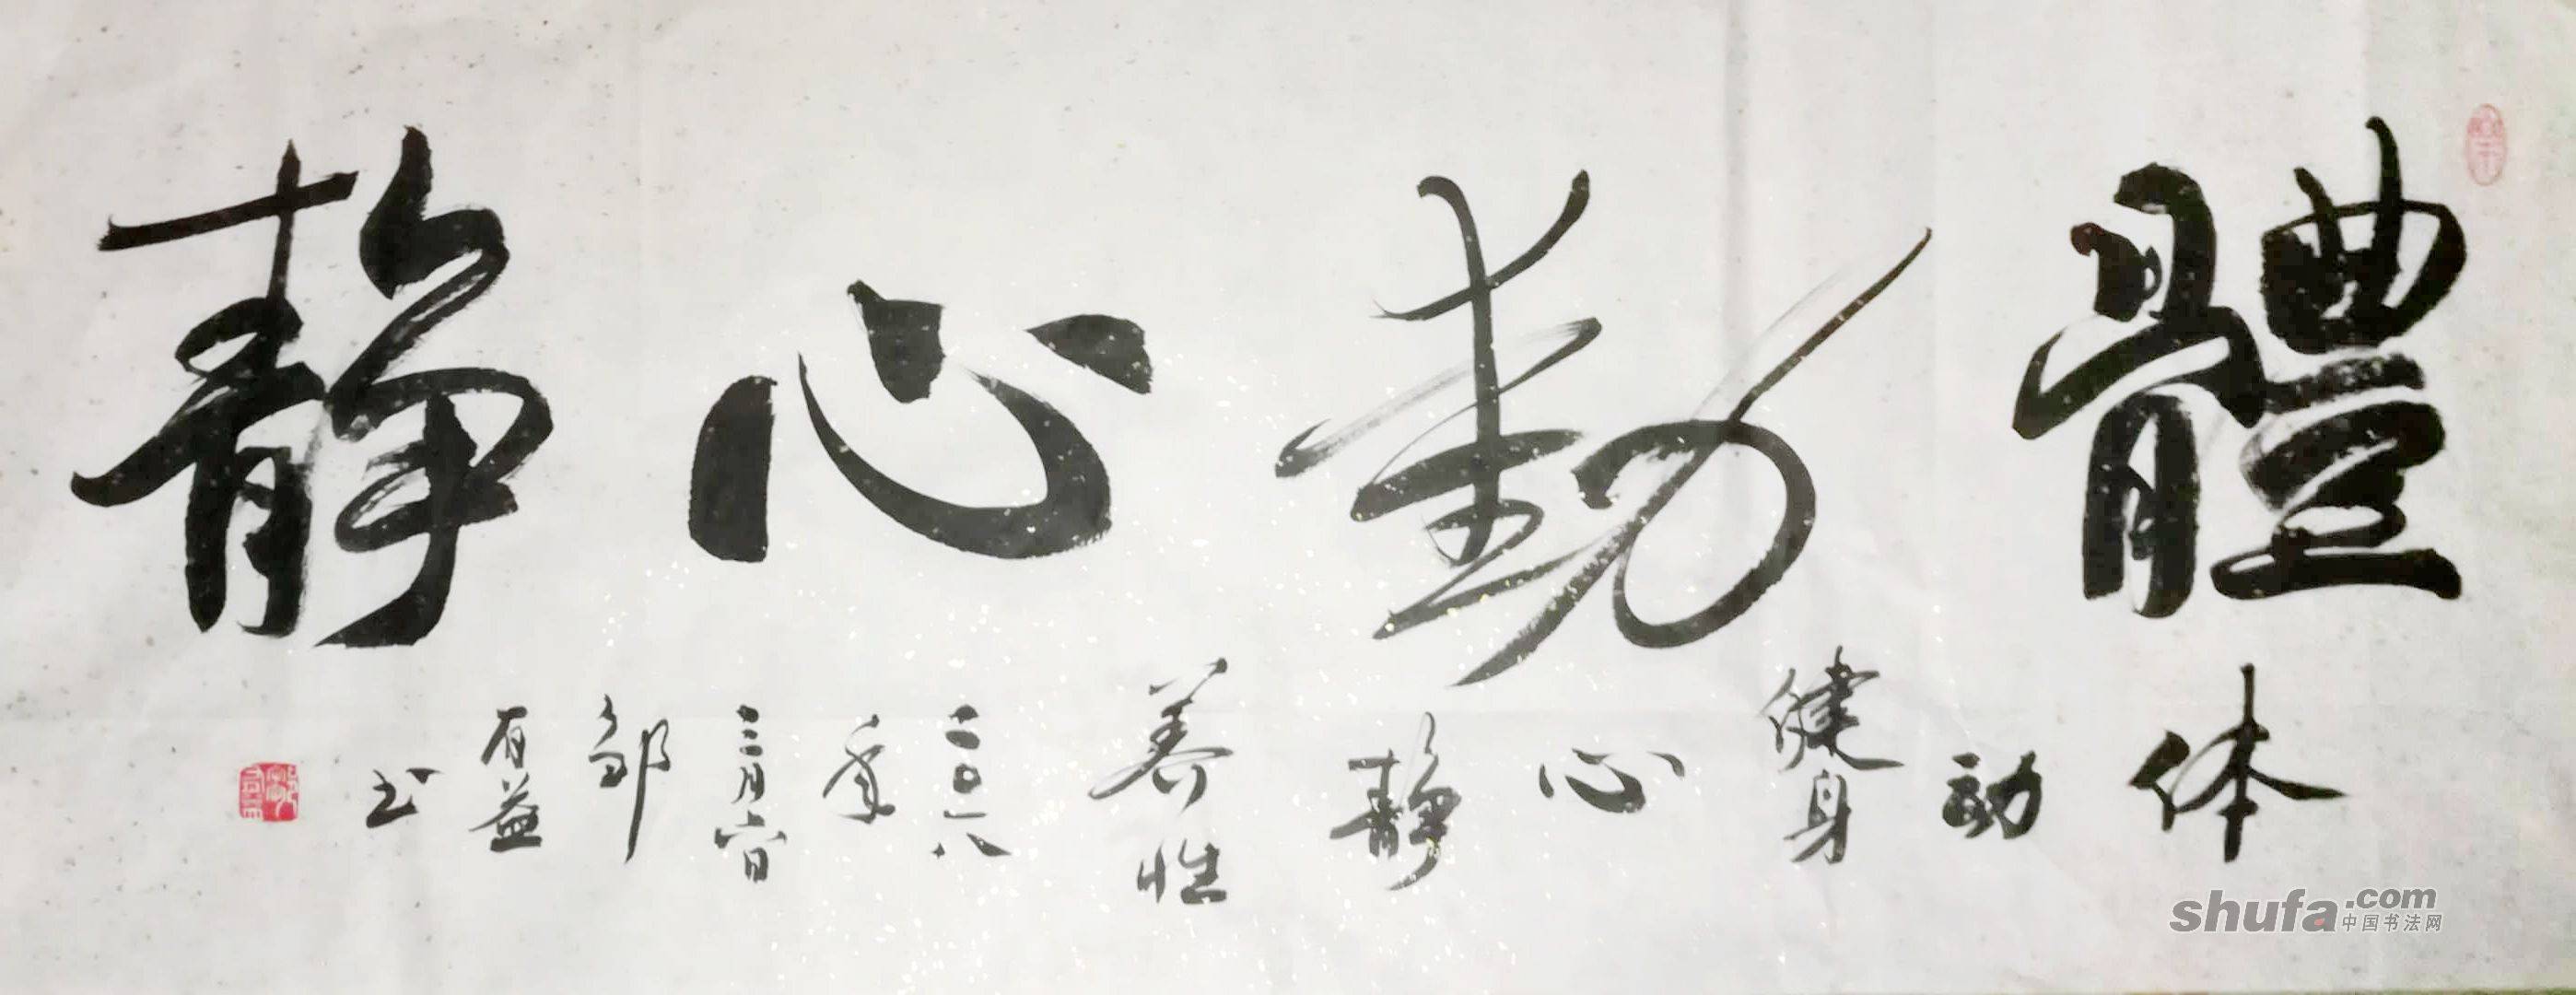 體動心静
体动健身心静养性二〇一八年三月六日邹有益书
shufa.com
中国书法网